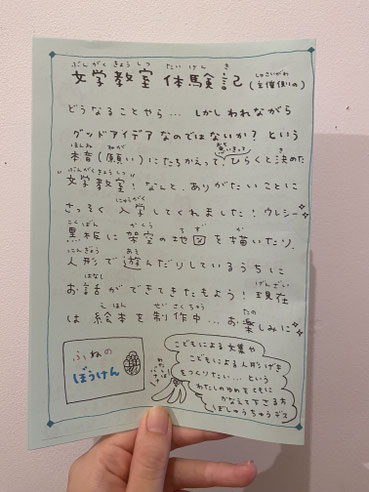 文学教室 体験記 (主催側の)
どうなることやら… しかしわれながら
グッドアイデアなのではないか? という
本音(願い)にたちかえって、ひらくと決めた
"文学教室"! なんと、ありがたいことに
さっそく入学してくれました! ウレシー
黒板に架空の地図を描いたり、
人形で遊んだりしているうちに
お話ができてきたもよう! 現在
は 絵本を制作中… お楽しみに
ふねの
ぼうけん
こどもによる文集や
こどもによる人形げき
をつくりたい… という
わたしのゆめをともに
かなえて下さる方
ぼしゅうちゅうデス